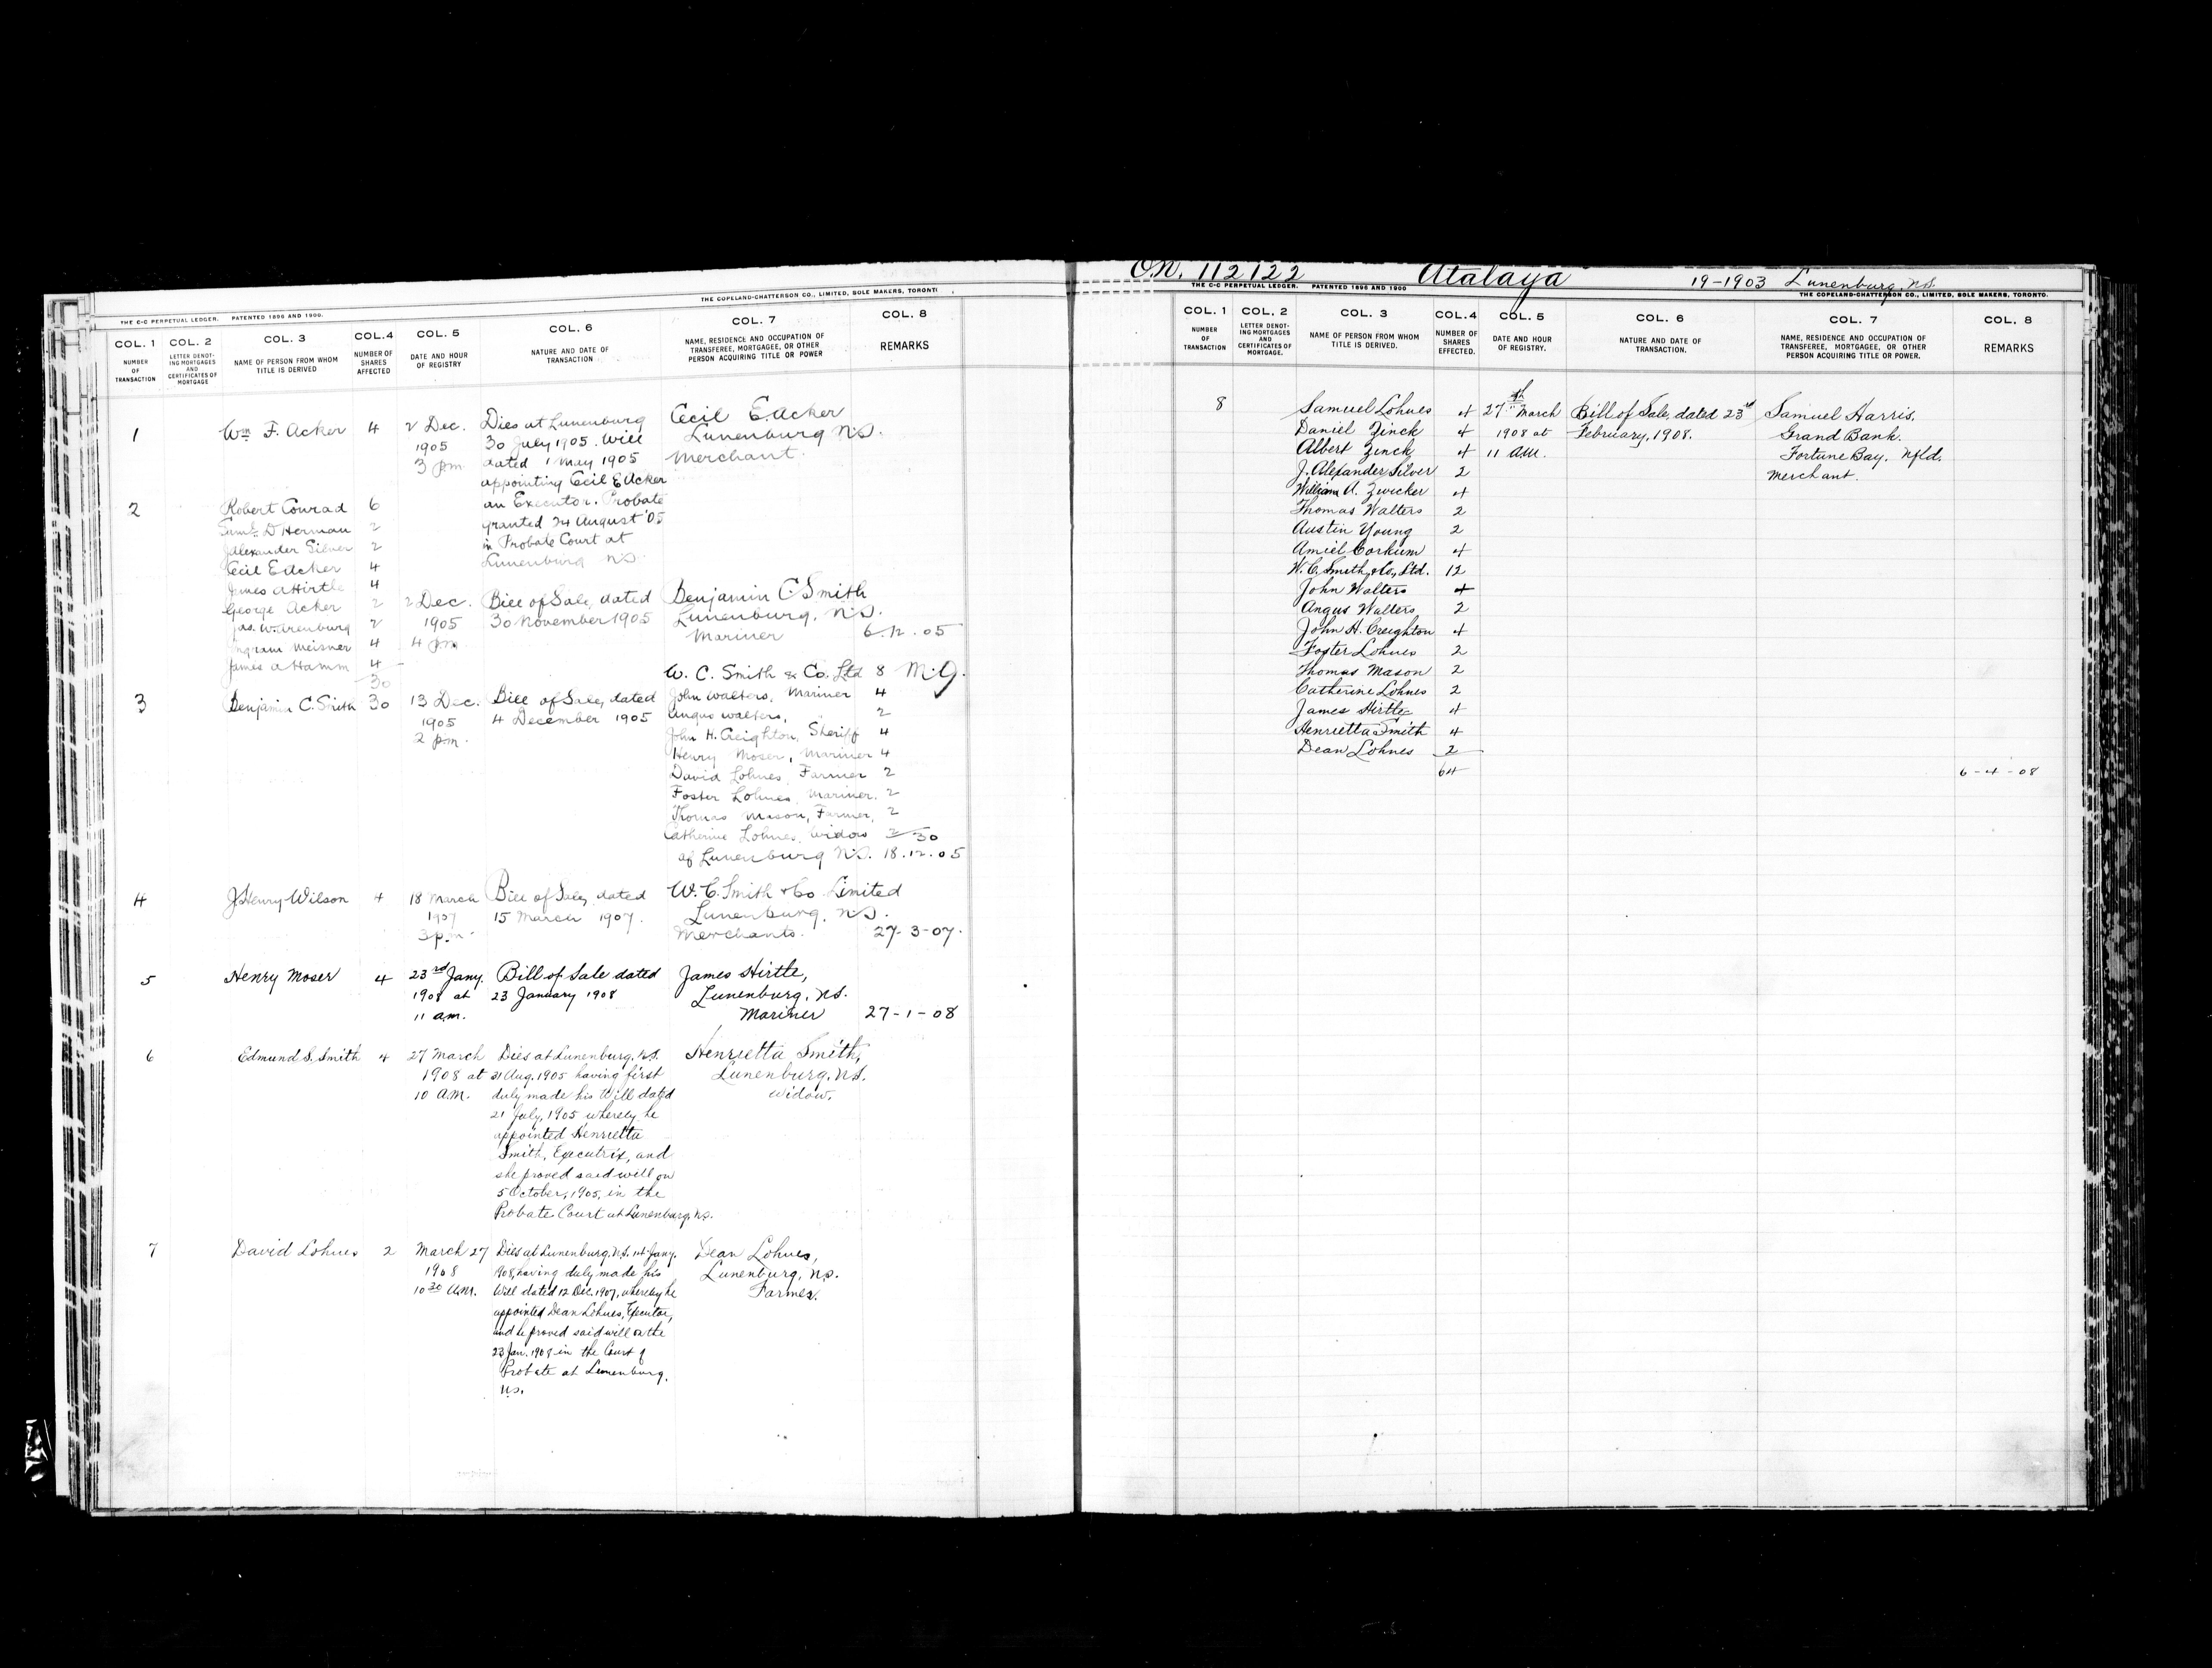 THE C-C PERPETUAL LEDGER. PATENTED 1896 AND 1900.
THE COPELAND-CHATTERSON CO., LIMITED, SOLE MAKERS, TORONTO
COL. 1 COL. 2 COL. 3 COL. 4 COL. 5 COL. 6 COL. 7 COL. 8
NUMBER OF TRANSACTION
LETTER DENOTING MORTGAGES AND CERTIFICATES OF MORTGAGE
NAME OF PERSON FROM WHOM TITLE IS DERIVED
NUMBER OF SHARES AFFECTED
DATE AND HOUR OF REGISTRY.
NATURE AND DATE OF TRANSACTION.
NAME, RESIDENCE AND OCCUPATION OF TRANSFEREE, MORTGAGEE, OR OTHER PERSON ACQUIRING TITLE OR POWER
REMARKS
1 Wm F. Acker 4
2 Dec.
1905
3 pm
Dies at Lunenburg
30 July 1905. Will
dated 1 May 1905
appointing Cecil E Acker
an Executor. Probate
granted 24 August '05
in Probate Court at
Lunenburg N.S.
Cecil E. Acker
Lunenburg N.S.
Merchant.
2 Robert Conrad 6
Saml. D Herman 2
J Alexander Silver 2
Cecil E Acker 4
James A Hirtle 4
George Acker 2
Jas. W. 2
Ingram Meisner 4
James A Hamm 4
30
2 Dec.
1905
4 pm
Bill of Sale, dated
30 November 1905
Benjamin C. Smith
Lunenburg, N.S.
Mariner 6.12.05
3 Benjamin C. Smith 30
13 Dec.
1905
2 pm.
Bill of Sale, dated
4 December 1905
W. C. Smith & Co. Ltd 8
John Walters, Mariner 4
Angus Walters, " 2
John H. Creighton, Sheriff 4
Henry Moser, Mariner 4
David Lohnes, Farmer 2
Foster Lohnes, Mariner. 2
Thomas Mason, Farmer, 2
Catherine Lohnes, Widow 2 30
of Lunenburg N.S. 18.12.05
4 J Henry Wilson 4
18 March
1907
3 p.m.
Bill of Sale, dated
15 March 1907.
W. C. Smith & Co Limited
Lunenburg, N.S.
Merchants. 27-3-07.
5 Henry Moser 4
23rd Jany.
1908 at
11 a.m.
Bill of Sale dated
23 January 1908
James Hirtle,
Lunenburg, N.S.
Mariner 27-1-08
6 Edmund S. Smith 4
27 March
1908 at
10 A.M.
Dies at Lunenburg, N.S.
31 Aug. 1905 having first
duly made his Will dated
21 July, 1905 whereby he
appointed Henrietta
Smith, Executrix, and
she proved said will on
5 October, 1905, in the
Probate Court at Lunenburg, N.S.
Henrietta Smith,
Lunenburg, N.S.
Widow.
7 David Lohnes 2
March 27
1908
10 30 A.M.
Dies at Lunenburg, N.S. 1st Jany.
1908, having duly made his
Will dated 12 Dec. 1907, whereby he
appointed Dean Lohnes, Executor,
and he proved said will on the
23 Jan. 1908 in the Court of
Probate at Lunenburg,
N.S.
Dean Lohnes,
Lunenburg, N.S.
Farmer.
O.N. 112122 Atalaya 19-1903 Lunenburg, N.S.
THE C-C PERPETUAL LEDGER. PATENTED 1896 AND 1900
THE COPELAND-CHATTERSON CO., LIMITED, SOLE MAKERS, TORONTO.
COL. 1 COL. 2 COL. 3 COL. 4 COL. 5 COL. 6 COL. 7 COL. 8
NUMBER OF TRANSACTION
LETTER DENOTING MORTGAGES AND CERTIFICATES OF MORTGAGE.
NAME OF PERSON FROM WHOM TITLE IS DERIVED.
NUMBER OF SHARES EFFECTED.
DATE AND HOUR OF REGISTRY.
NATURE AND DATE OF TRANSACTION.
NAME, RESIDENCE AND OCCUPATION OF TRANSFEREE, MORTGAGEE, OR OTHER PERSON ACQUIRING TITLE OR POWER.
REMARKS
8 Samuel Lohnes 4
Daniel Zinck 4
Albert Zinck 4
J. Alexander Silver 2
William A. Zwicker 4
Thomas Walters 2
Austin Young 2
Amiel Corkum 4
W. C. Smith & Co., Ltd. 12
John Walters 4
Angus Walters 2
John H. Creighton 4
Foster Lohnes 2
Thomas Mason 2
Catherine Lohnes 2
James Hirtle 4
Henrietta Smith 4
Dean Lohnes 2
64
27th March
1908 at
11 A.M.
Bill of Sale, dated 23rd
February, 1908.
Samuel Harris,
Grand Bank.
Fortune Bay, Nfld.
Merchant.
6-4-08